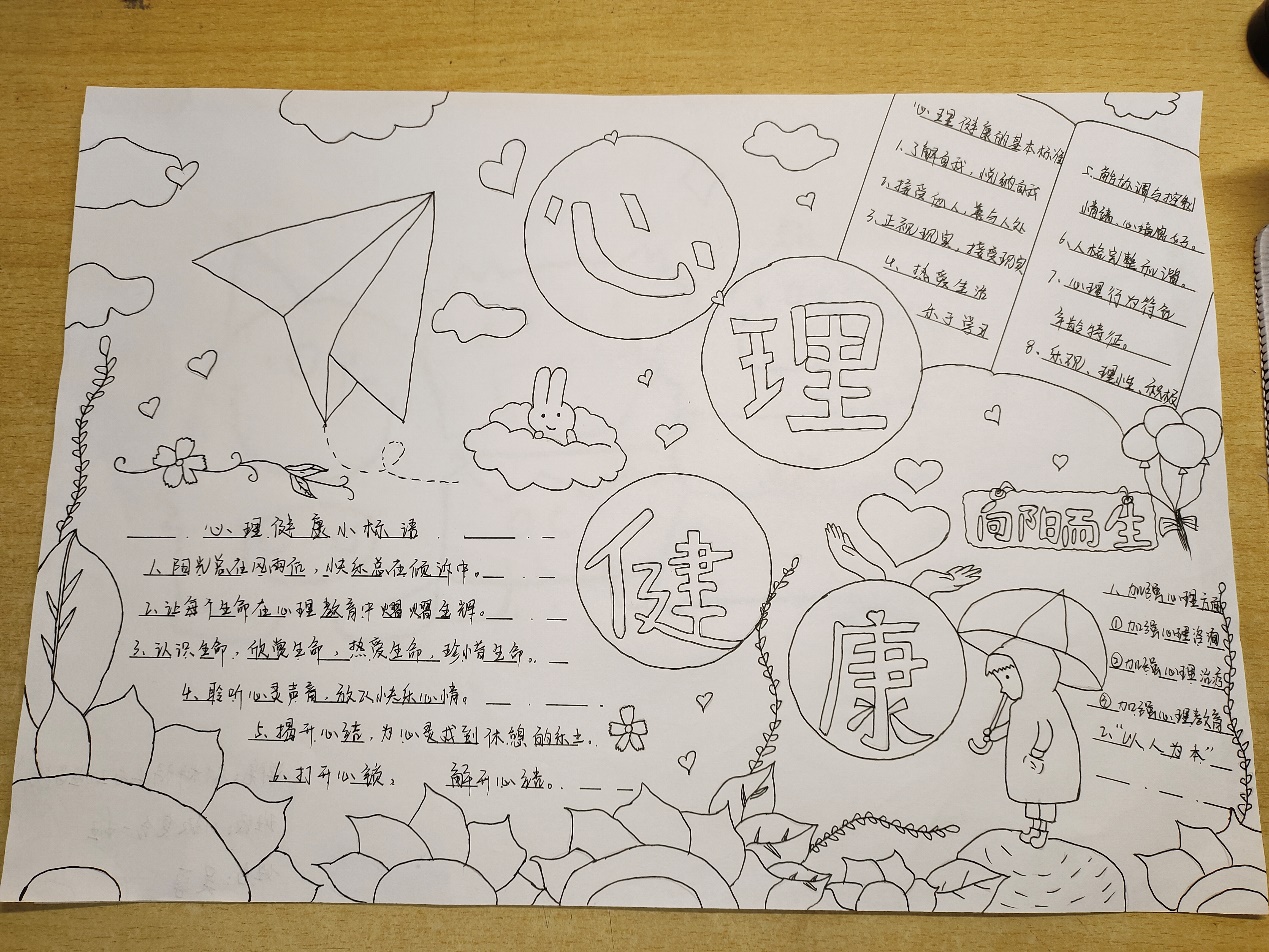 心理健康
心理健康的基本标准
1、了解自我，悦纳自我
2、接受他人，善与人处
3、正视现实，接受现实
4、热爱生活
乐于学习
5、能协调与控制
情绪，心境良好。
6、人格完整和谐。
7、心理行为符合
年龄特征。
8、乐观、理性、积极
向阳而生
心理健康小标语
1、阳光总在风雨后，快乐总在倾诉中。
2、让每个生命在心理教育中熠熠生辉。
3、认识生命，欣赏生命，热爱生命，珍惜生命。
4、聆听心灵声音，放飞快乐心情。
5、撂开心结，为心灵找到休憩的乐土。
6、打开心锁， 解开心结。
1、加强心理方面
①加强心理咨询
②加强心理治疗
③加强心理教育
2、“以人为本”